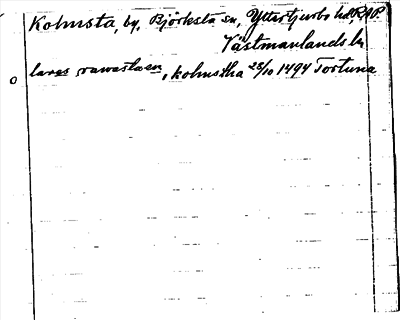 Kolmsta, by, Björksta sn, Yttertjurbo hd RAP.
Västmanlands län
o lares rawasta en, kolmstha 28/10 1494 Tortuna